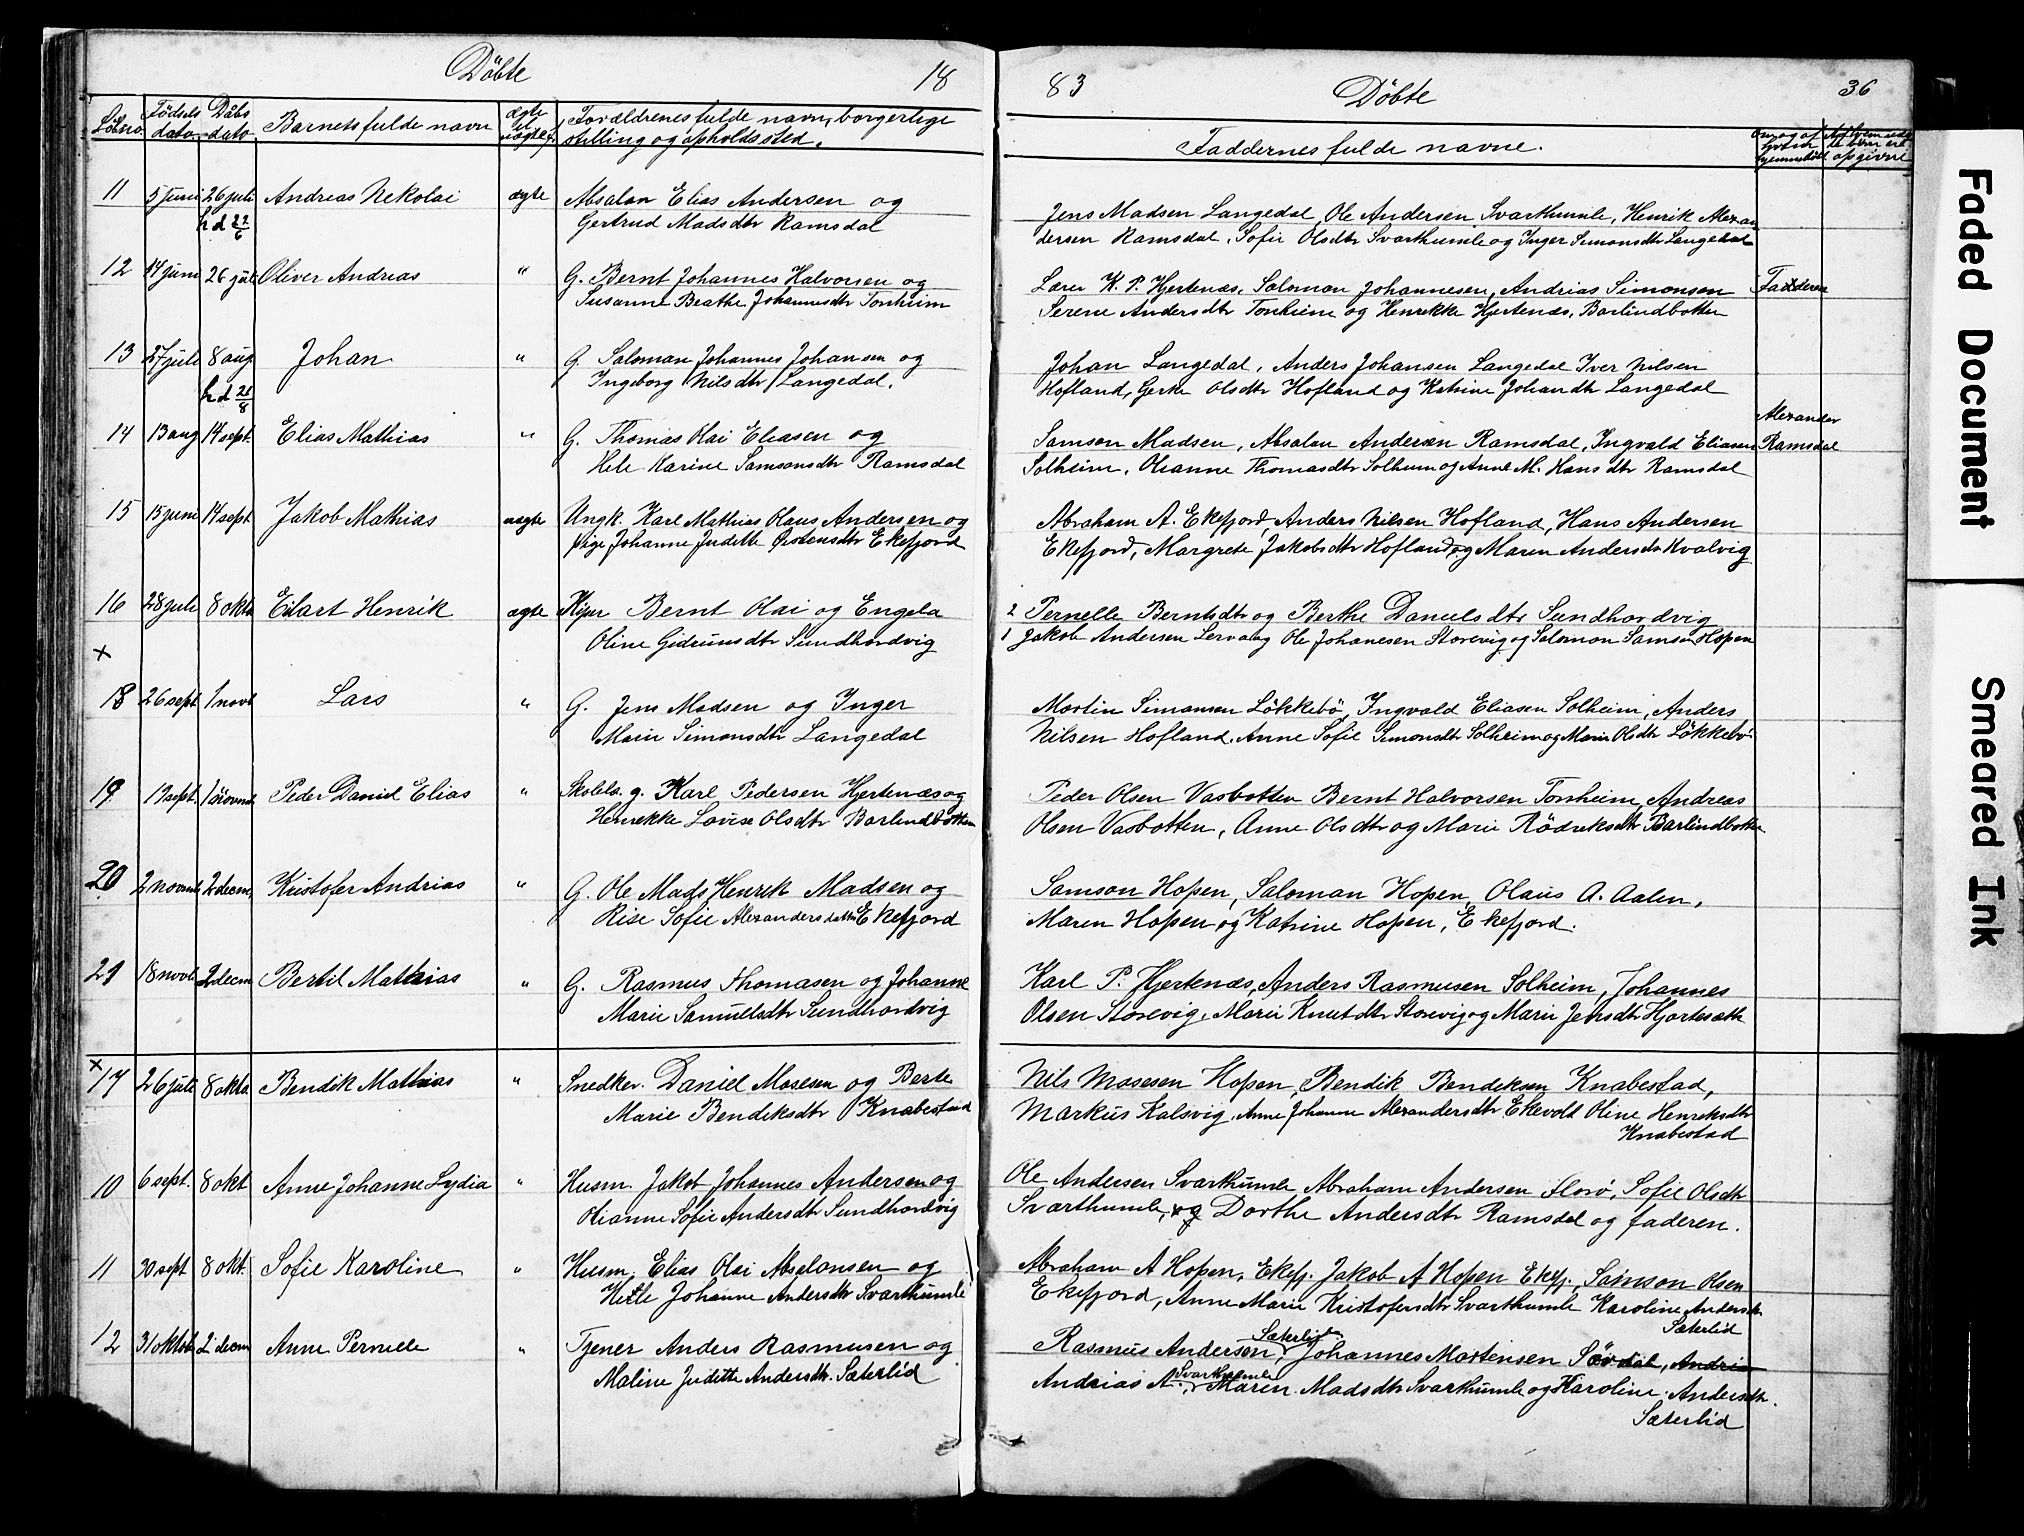 Döbte 18
Löbno. Födsels dato Dåbs dato Barnets fulde navn ægte el. uægte f. Forældrenes fulde navn, borgerlige stilling og opholdssted.
11 5 juni 26 juli Andreas Nekolai ægte Absalon Elias Andersen og
h d 22/6 Gertrud Madsdtr Ramsdal
12 14 juni 26 juli Oliver Andreas " G. Bernt Johannes Halvorsen og
Susanne Beathe Johannesdtr Tonheim
13 27 juli 8 aug Johan " G. Saloman Johannes Johansen og
h d 28/8 Ingeborg Nilsdtr Langedal.
14 13 aug 14 sept. Elias Mathias " G. Thomas Olai Eliasen og
Hele Karine Samsonsdtr Ramsdal
15 15 juni 14 sept Jakob Mathias uægte Ungk. Karl Mathias Olaus Andersen og
pige Johanne Juditte Østensdtr Ekefjord
16 28 juli 8 okt Eilart Henrik ægte Kiper Bernt Olai og Engela
x Oline Gidiunsdtr Sundhordvig
18 26 sept 1 novb Lars " G. Jens Madsen og Inger
Marie Simonsdtr Langedal
19 19 sept. 1 novmb. Peder Daniel Elias " Skolels. g. Karl Pedersen Hjertenæs og
Henrekke Lovise Olsdtr Barlindbotten
20 2 novmb. 2 decm. Kristofer Andrias " G. Ole Mads Henrik Madsen og
Rise Sofie Alexandersdatter Ekefjord
21 18 novb. 2 decm Bertil Mathias " G. Rasmus Thomasen og Johanne
Marie Samuelsdtr Sundhordvig
x 17 26 juli 8 okto. Bendik Mathias " Snedker. Daniel Mosesen og Berte
Marie Bendiksdtr Knabestad
10 6 sept. 8 okt Anne Johanne Lydia " Husm. Jakob Johannes Andersen og
Olianne Sofie Andersdtr Sundhordvig
11 30 sept 8 okt. Sofie Karoline " Husm. Elias Olai Absalonsen og
Helle Johanne Andersdtr Svarthumle
12 31 oktob. 2 decm Anne Pernele " Tjener Anders Rasmusen og
Maline Juditte Andersdtr. Sæterlid
83 Döbte 36
Faddernes fulde navne.
Jens Madsen Langedal, Ole Andersen Svarthumle, Henrik Alexan
dersen Ramsdal, Sofie Olsdtr Svarthumle og Inger Simonsdtr Langedal
Lærer K. P. Hjertenæs, Saloman Johannesen, Andrias Simonsen Fadderne
Serene Andersdtr Tonheim og Henrekke Hjertenæs, Barlindbotten
Johan Langedal, Anders Johansen Langedal Iver Nilsen
Hofland, Gerke Olsdtr Hofland og Katrine Johandtr Langedal
Alexander
Samson Madsen, Absalon Andersen Ramsdal, Ingvald Eliasen Ramsdal
Solheim, Olianne Thomasdtr Solheim og Anne M. Hansdtr Ramsdal
Abraham A. Ekefjord, Anders Nilsen Hofland, Hans Andersen
Ekefjord, Margrete Jakobsdtr Hofland og Maren Andersdtr Kvalvig
2 Pernelle Berntsdtr og Berthe Danielsdtr Sundhordvig
1 Jakob Andersen Lervaag Ole Johanesen Storevig og Salomon Samsen Hopen
Martin Simonsen Løkkebö, Ingvald Eliasen Solheim, Anders
Nilsen Hofland, Anne Sofie Simonsdtr Solheim og Marie Olsdtr Løkkebö
Peder Olsen Vasbotten Bernt Halvorsen Tonheim, Andreas
Olsen Vasbotten, Anne Olsdtr og Marie Rödriksdtr Barlindbotten
Samson Hopen, Saloman Hopen, Olaus A. Aalen,
Maren Hopen og Katrine Hopen, Ekefjord.
Karl P. Hjertenæs, Anders Rasmusen Solheim, Johannes
Olsen Storevig, Marie Knutdtr Storevig og Marie Jensdtr Hjortesæth
Nils Mosesen Hopen, Bendik Bendiksen Knabestad,
Markus Kalsvig, Anne Johanne Alexandersdtr Ekevold Oline Henreksdtr
Knabestad
Ole Andersen Svarthumle Abraham Andersen Florö, Sofie Olsdtr
Svarthumle, og Dorthe Andersdtr Ramsdal og faderen.
Abraham A Hopen, Ekefj. Jakob A Hopen Ekefj. Samson Olsen
Ekefjord, Anne Marie Kristofersdtr Svarthumle Karoline Andersdtr
Sæterlid
Rasmus Andersen, Sæterlid, Johannes Mortensen Sördal, Andria
Andrias A. Svarthumle, Maren Madsdtr Svarthumle og Karoline Andersdtr.
Sæterlid
Faded Document
Smeared Ink